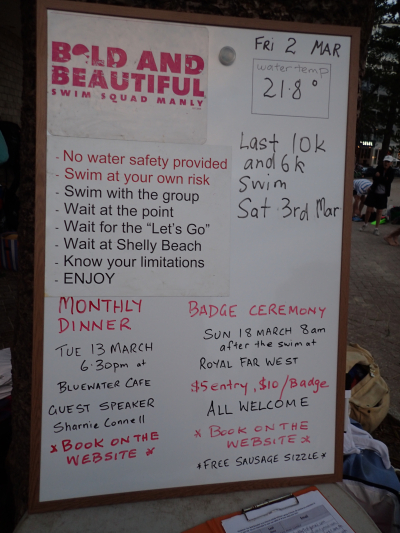 BOLD AND
BEAUTIFUL
SWIM SQUAD MANLY
FRI 2 MAR
water temp
21.8°
- No water safety provided
- Swim at your own risk
- Swim with the group
- Wait at the point
- Wait for the "Let's Go"
- Wait at Shelly Beach
- Know your limitations
- ENJOY
Last 10k
and 6k
Swim
Sat 3rd Mar
MONTHLY
DINNER
TUE 13 MARCH
6.30pm at
BLUEWATER CAFE
GUEST SPEAKER
Sharnie Connell
* BOOK ON THE
WEBSITE *
BADGE CEREMONY
SUN 18 MARCH 8am
after the swim at
ROYAL FAR WEST
$5 entry, $10/Badge
ALL WELCOME
* BOOK ON THE
WEBSITE *
*FREE SAUSAGE SIZZLE*